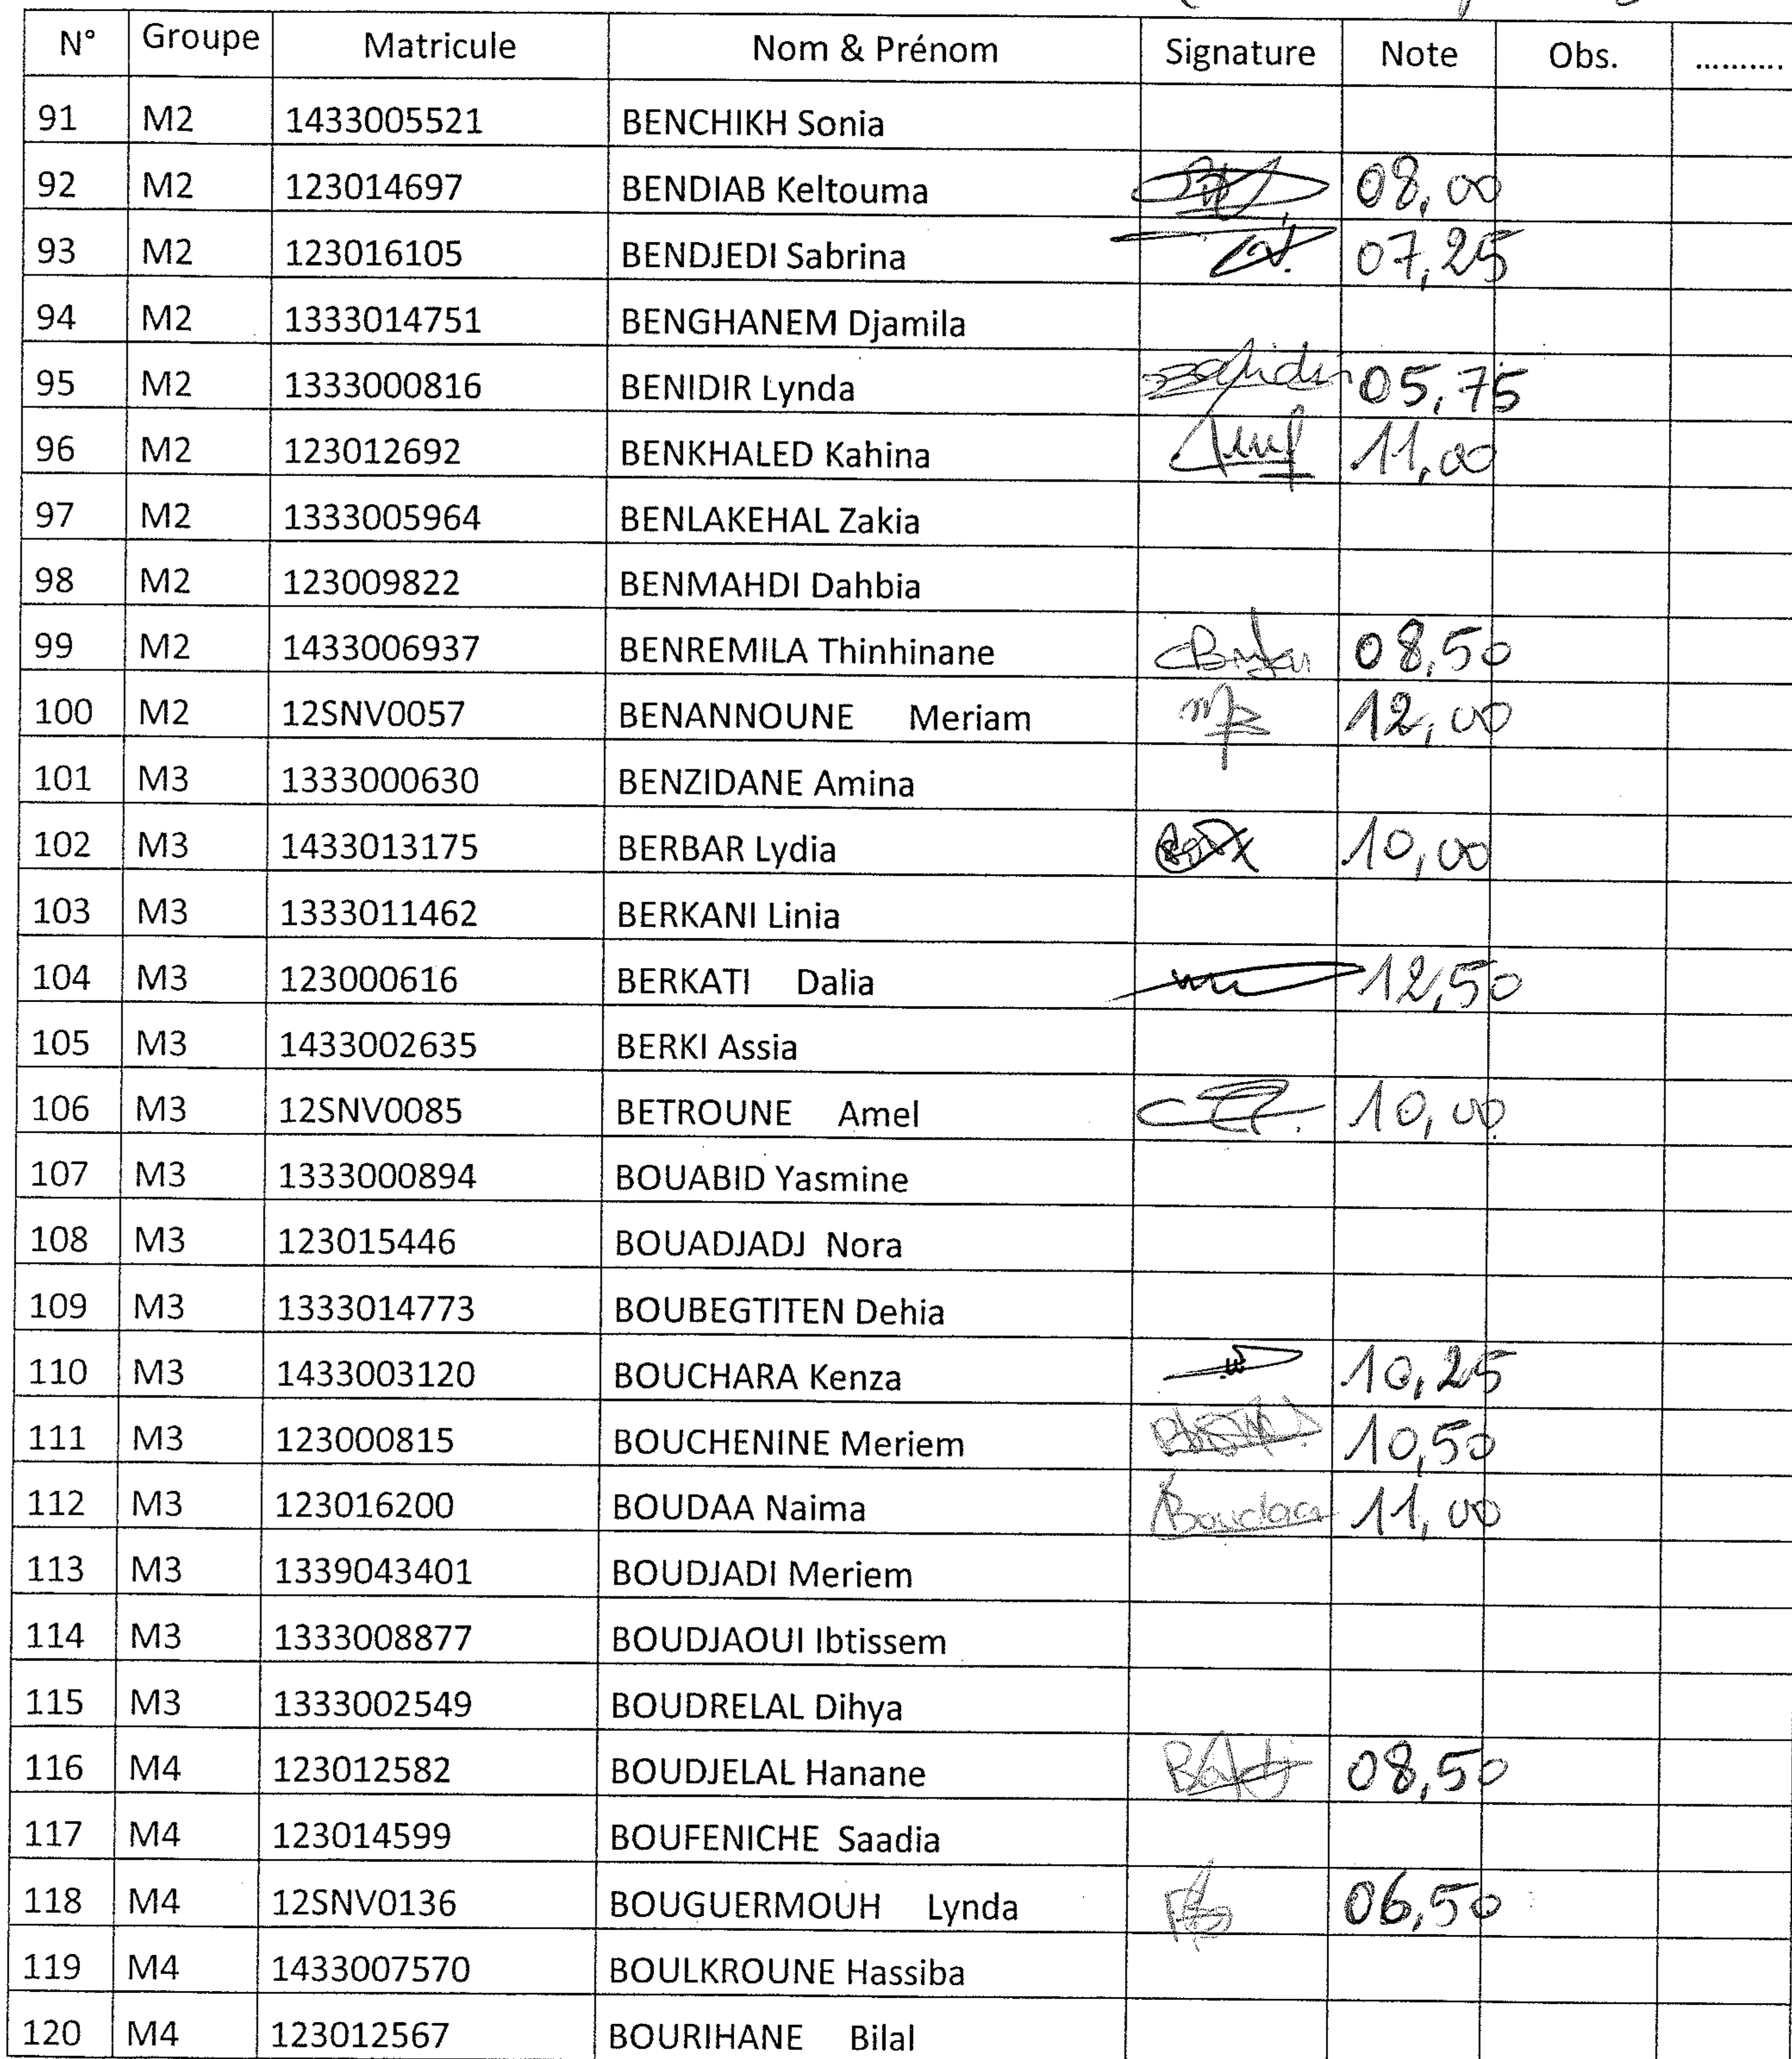 N° Groupe Matricule Nom & Prénom Signature Note Obs. ..........
91 M2 1433005521 BENCHIKH Sonia
92 M2 123014697 BENDIAB Keltouma 08,00
93 M2 123016105 BENDJEDI Sabrina 07,25
94 M2 1333014751 BENGHANEM Djamila
95 M2 1333000816 BENIDIR Lynda 05,75
96 M2 123012692 BENKHALED Kahina 11,00
97 M2 1333005964 BENLAKEHAL Zakia
98 M2 123009822 BENMAHDI Dahbia
99 M2 1433006937 BENREMILA Thinhinane 08,50
100 M2 12SNV0057 BENANNOUNE Meriam 12,00
101 M3 1333000630 BENZIDANE Amina
102 M3 1433013175 BERBAR Lydia 10,00
103 M3 1333011462 BERKANI Linia
104 M3 123000616 BERKATI Dalia 12,50
105 M3 1433002635 BERKI Assia
106 M3 12SNV0085 BETROUNE Amel 10,00
107 M3 1333000894 BOUABID Yasmine
108 M3 123015446 BOUADJADJ Nora
109 M3 1333014773 BOUBEGTITEN Dehia
110 M3 1433003120 BOUCHARA Kenza 10,25
111 M3 123000815 BOUCHENINE Meriem 10,50
112 M3 123016200 BOUDAA Naima Boudaa 11,00
113 M3 1339043401 BOUDJADI Meriem
114 M3 1333008877 BOUDJAOUI Ibtissem
115 M3 1333002549 BOUDRELAL Dihya
116 M4 123012582 BOUDJELAL Hanane 08,50
117 M4 123014599 BOUFENICHE Saadia
118 M4 12SNV0136 BOUGUERMOUH Lynda 06,50
119 M4 1433007570 BOULKROUNE Hassiba
120 M4 123012567 BOURIHANE Bilal